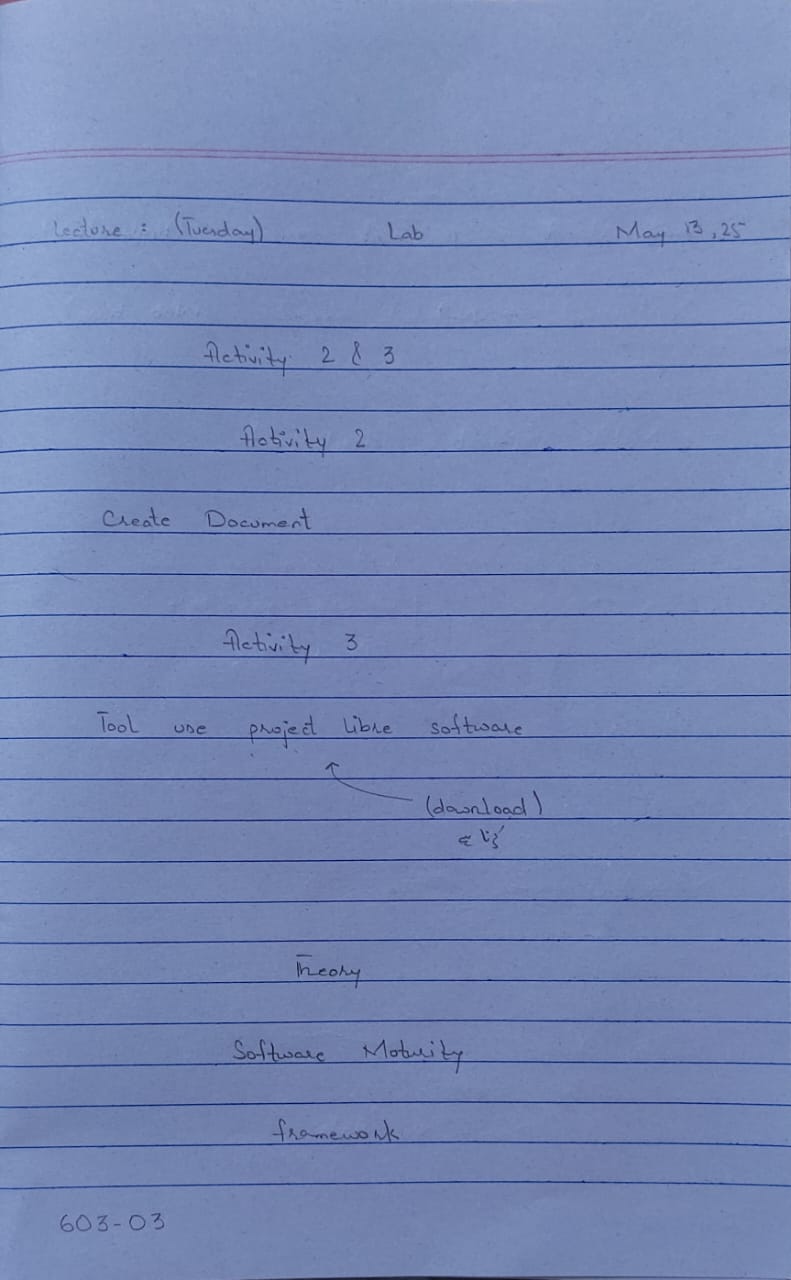 Lecture : (Tuesday) Lab May 13, 25
Activity 2 & 3
Activity 2
Create Document
Activity 3
Tool use project libre software
(download)
Theory
Software Maturity
framework
603-03